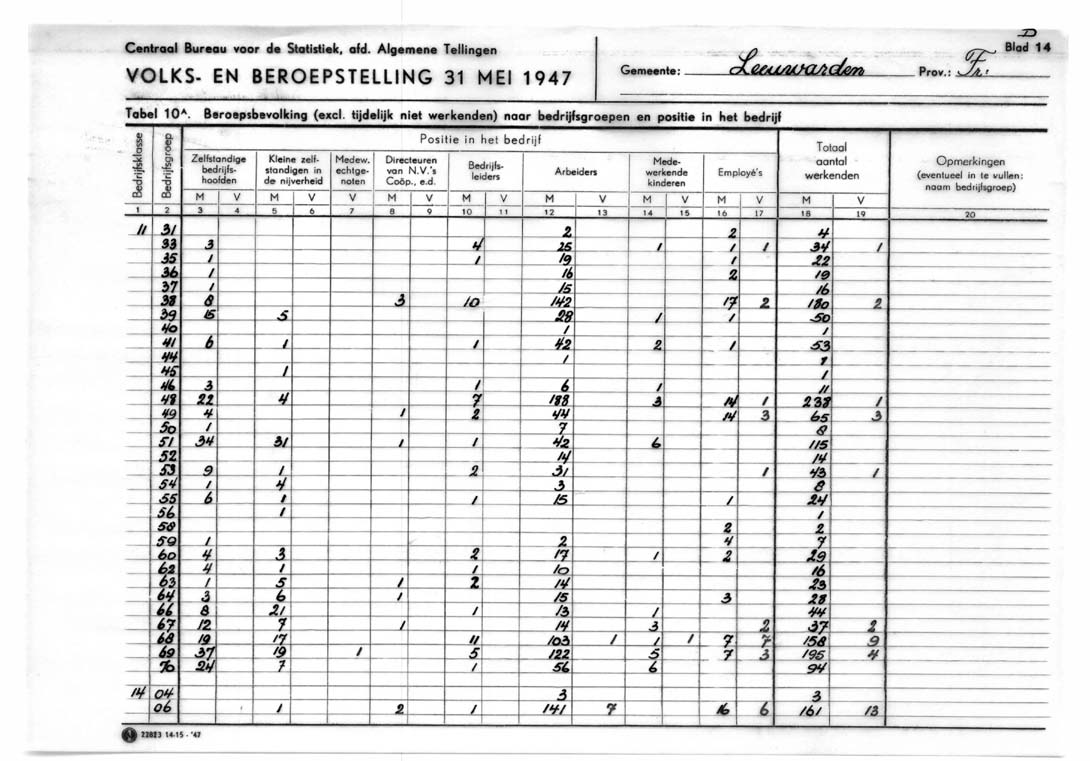 D
Centraal Bureau voor de Statistiek, afd. Algemene Tellingen
Blad 14
VOLKS- EN BEROEPSTELLING 31 MEI 1947
Gemeente: Leeuwarden Prov.: Fr:
Tabel 10A. Beroepsbevolking (excl. tijdelijk niet werkenden) naar bedrijfsgroepen en positie in het bedrijf
Bedrijfsklasse Bedrijfsgroep Positie in het bedrijf Totaal aantal werkenden Opmerkingen (eventueel in te vullen: naam bedrijfsgroep)
Zelfstandige bedrijfshoofden Kleine zelfstandigen in de nijverheid Medew. echtgenoten Directeuren van N.V.'s Coöp., e.d. Bedrijfsleiders Arbeiders Medewerkende kinderen Employé's
M V M V V M V M V M V M V M V M V
1 2 3 4 5 6 7 8 9 10 11 12 13 14 15 16 17 18 19 20
11 31 2 2 4
33 3 4 25 1 1 1 34 1
35 1 1 19 1 22
36 1 16 2 19
37 1 15 16
38 8 3 10 142 17 2 180 2
39 15 5 28 1 1 50
40 1 1
41 6 1 1 42 2 1 53
44 1 1
45 1 1
46 3 1 6 1 11
48 22 4 7 188 3 14 1 238 1
49 4 1 2 44 14 3 65 3
50 1 7 8
51 34 31 1 1 42 6 115
52 14 14
53 9 1 2 31 1 43 1
54 1 4 3 8
55 6 1 1 15 1 24
56 1 1
58 2 2
59 1 2 4 7
60 4 3 2 17 1 2 29
62 4 1 1 10 16
63 1 5 1 2 14 23
64 3 6 1 15 3 28
66 8 21 1 13 1 44
67 12 7 1 14 3 2 37 2
68 19 17 11 103 1 1 1 7 7 158 9
69 37 19 1 5 122 5 7 3 195 4
70 24 7 1 56 6 94
14 04 3 3
06 1 2 1 141 7 16 6 161 13
22823 14-15 - '47